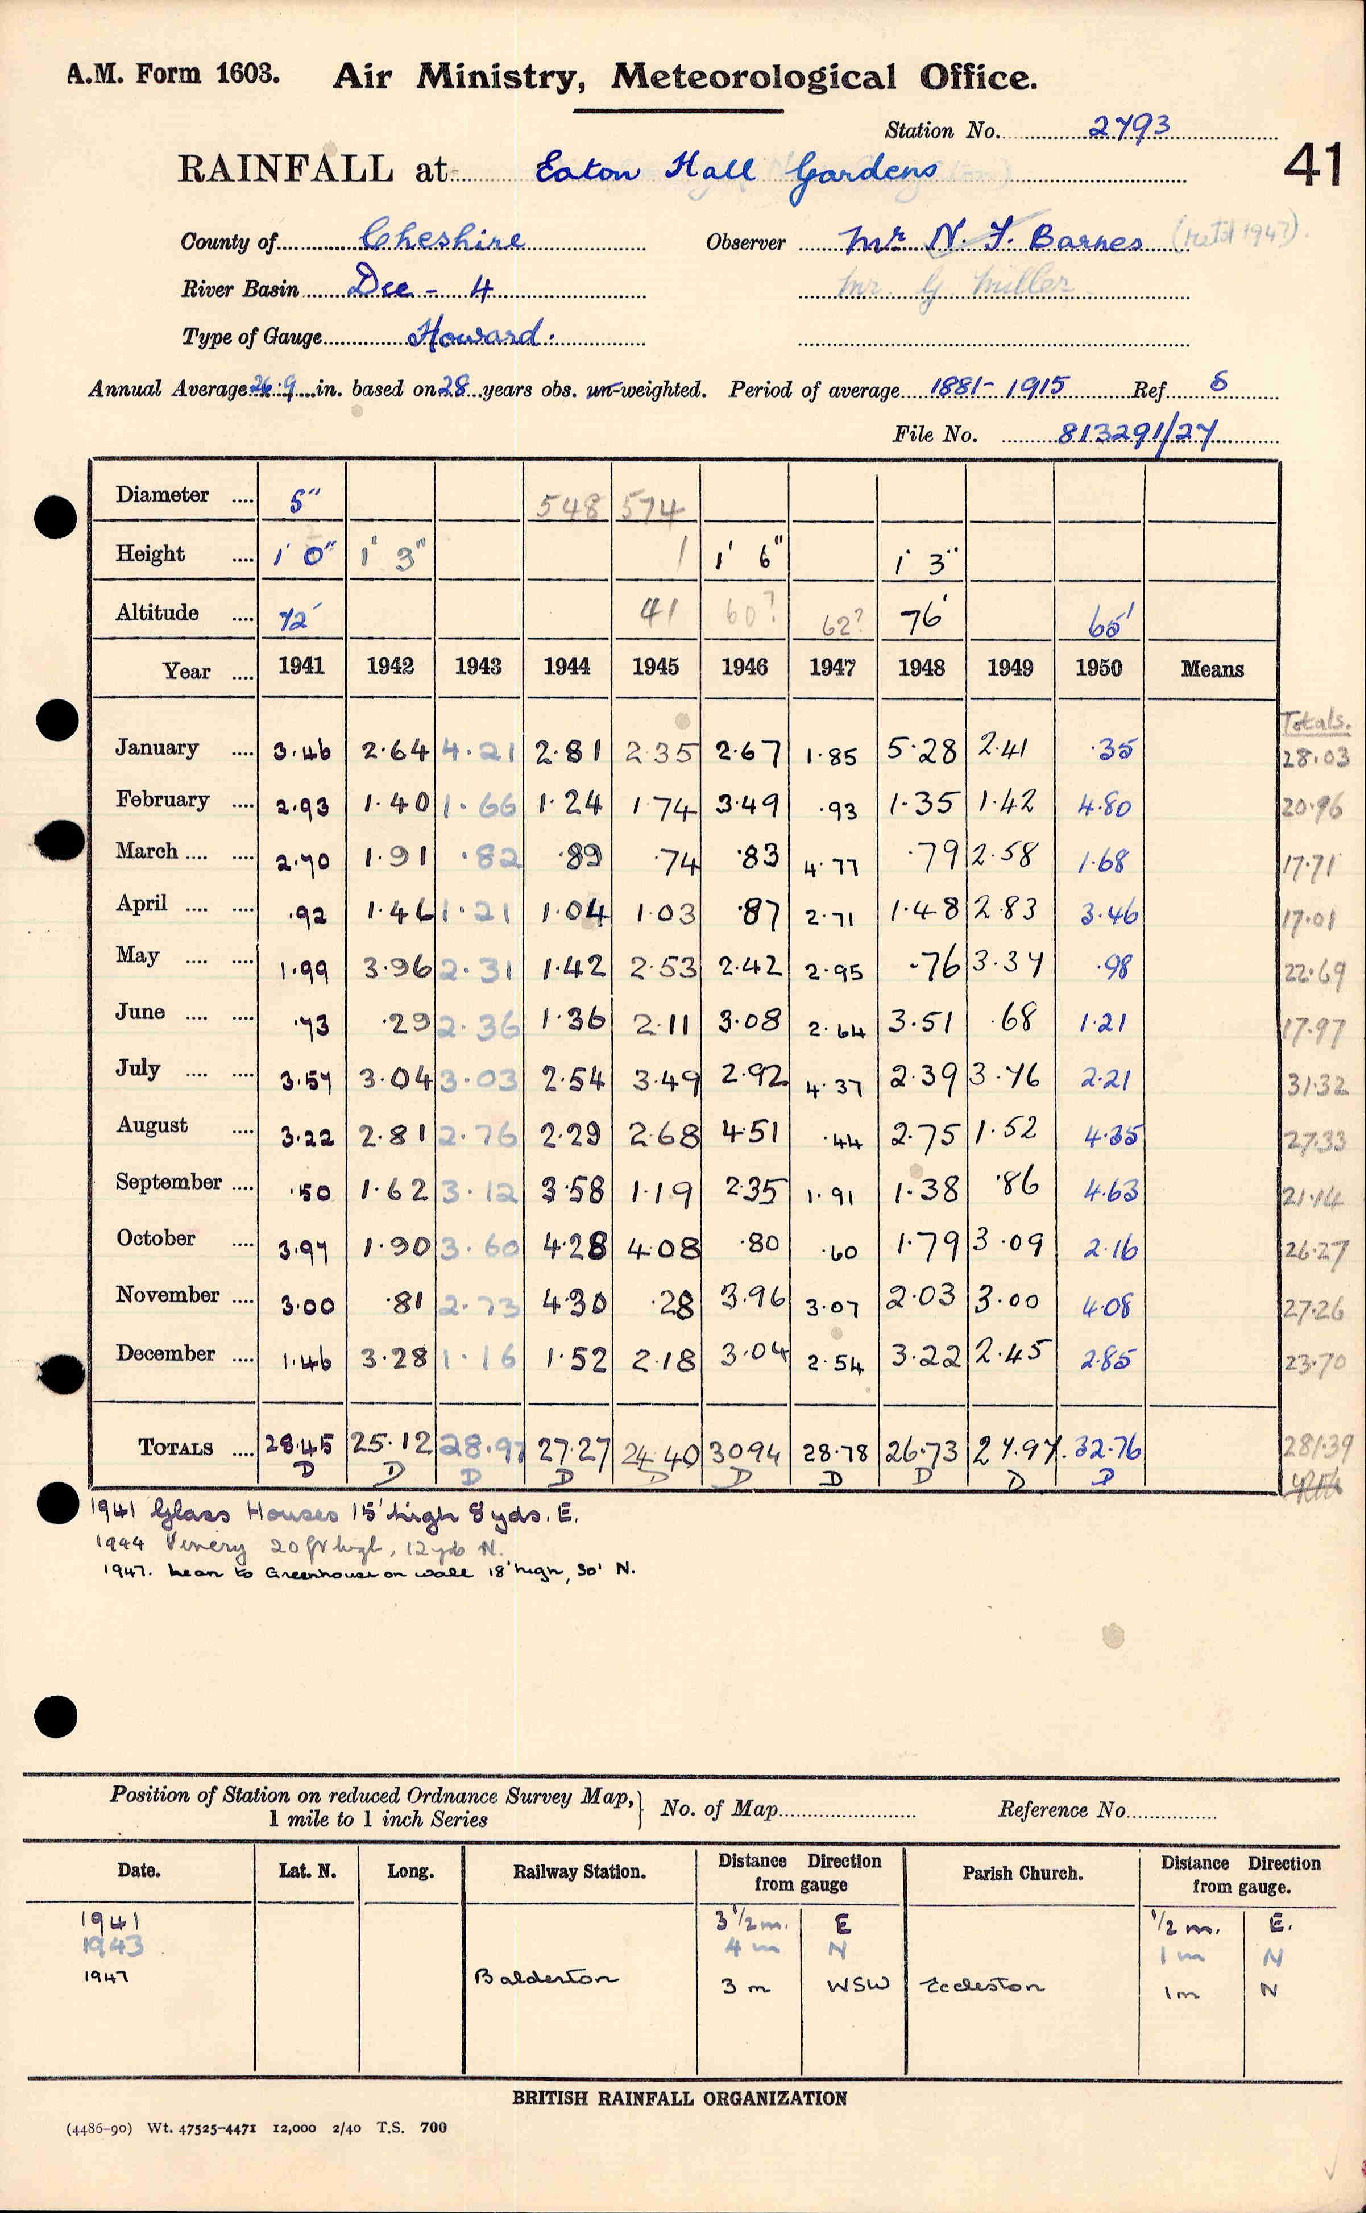 A.M. Form 1603. Air Ministry, Meteorological Office.
Station No. 2793
RAINFALL at Eaton Hall Gardens 41
County of Cheshire Observer Mr N. F. Barnes (retd 1947).
River Basin Dee - 4 Mr. G Miller
Type of Gauge Howard.
Annual Average 26.9 in. based on 28 years obs. un-weighted. Period of average 1881-1915 Ref 5
File No. 813291/27
Diameter .... 5" 548 574
Height .... 1' 0" 1' 3" 1 1' 6" 1' 3"
Altitude .... 72' 41 60? 62? 76' 65'
Year .... 1941 1942 1943 1944 1945 1946 1947 1948 1949 1950 Means
Totals.
January .... 3.46 2.64 4.21 2.81 2.35 2.67 1.85 5.28 2.41 .35 28.03
February .... 2.93 1.40 1.66 1.24 1.74 3.49 .93 1.35 1.42 4.80 20.96
March .... .... 2.70 1.91 .82 .89 .74 .83 4.77 .79 2.58 1.68 17.71
April .... .... .92 1.46 1.21 1.04 1.03 .87 2.71 1.48 2.83 3.46 17.01
May .... .... 1.99 3.96 2.31 1.42 2.53 2.42 2.95 .76 3.37 .98 22.69
June .... .... .73 .29 2.36 1.36 2.11 3.08 2.64 3.51 .68 1.21 17.97
July .... .... 3.57 3.04 3.03 2.54 3.49 2.92 4.37 2.39 3.76 2.21 31.32
August .... 3.22 2.81 2.76 2.29 2.68 4.51 .44 2.75 1.52 4.35 27.33
September .... .50 1.62 3.12 3.58 1.19 2.35 1.91 1.38 .86 4.63 21.14
October .... 3.97 1.90 3.60 4.28 4.08 .80 .60 1.79 3.09 2.16 26.27
November .... 3.00 .81 2.73 4.30 .28 3.96 3.07 2.03 3.00 4.08 27.26
December .... 1.46 3.28 1.16 1.52 2.18 3.04 2.54 3.22 2.45 2.85 23.70
TOTALS .... 28.45 25.12 28.97 27.27 24.40 30.94 28.78 26.73 27.97 32.76 281.39
D D D D D D D D D D
1941 Glass Houses 15' high 8 yds. E.
1944 Vinery 20 ft high, 12 yds N.
1947. Lean to Greenhouse on wall 18' high, 30' N.
Position of Station on reduced Ordnance Survey Map, 1 mile to 1 inch Series } No. of Map Reference No.
Date. Lat. N. Long. Railway Station. Distance Direction from gauge Parish Church. Distance Direction from gauge.
1941 3 1/2 m. E 1/2 m. E.
1943 4 m N 1 m N
1947 Balderton 3 m WSW Eccleston 1m N
BRITISH RAINFALL ORGANIZATION
(4486-90) Wt. 47525-4471 12,000 2/40 T.S. 700